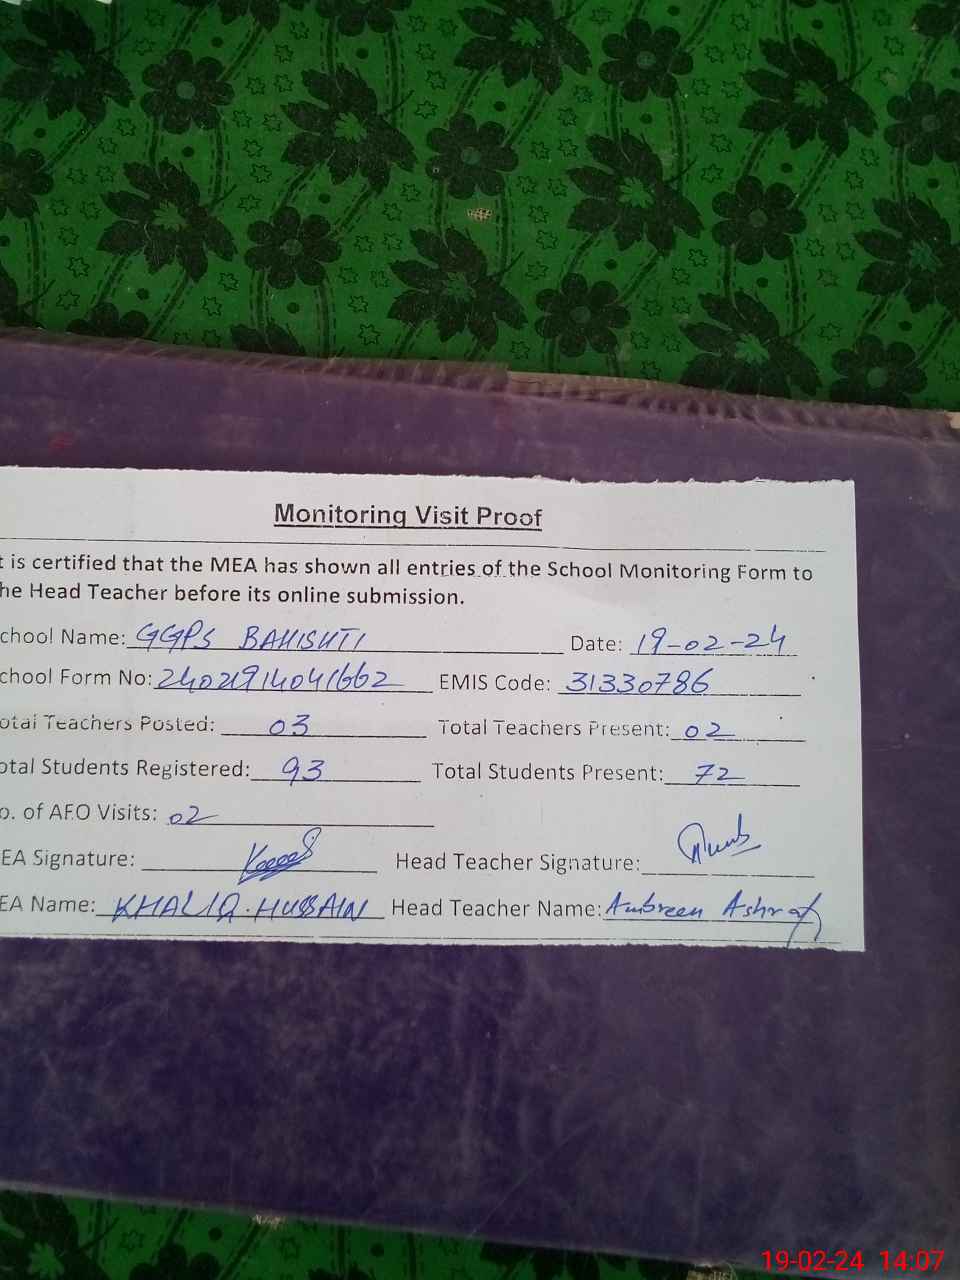 Monitoring Visit Proof
t is certified that the MEA has shown all entries of the School Monitoring Form to
he Head Teacher before its online submission.
chool Name: GGPS BAHISHTI Date: 19-02-24
chool Form No: 24021914041662 EMIS Code: 31330786
otal Teachers Posted: 03 Total Teachers Present: 02
otal Students Registered: 93 Total Students Present: 72
o. of AEO Visits: 02
EA Signature: Head Teacher Signature:
EA Name: KHALIQ. HUSSAIN Head Teacher Name: Ambreen Ashraf
19-02-24 14:07